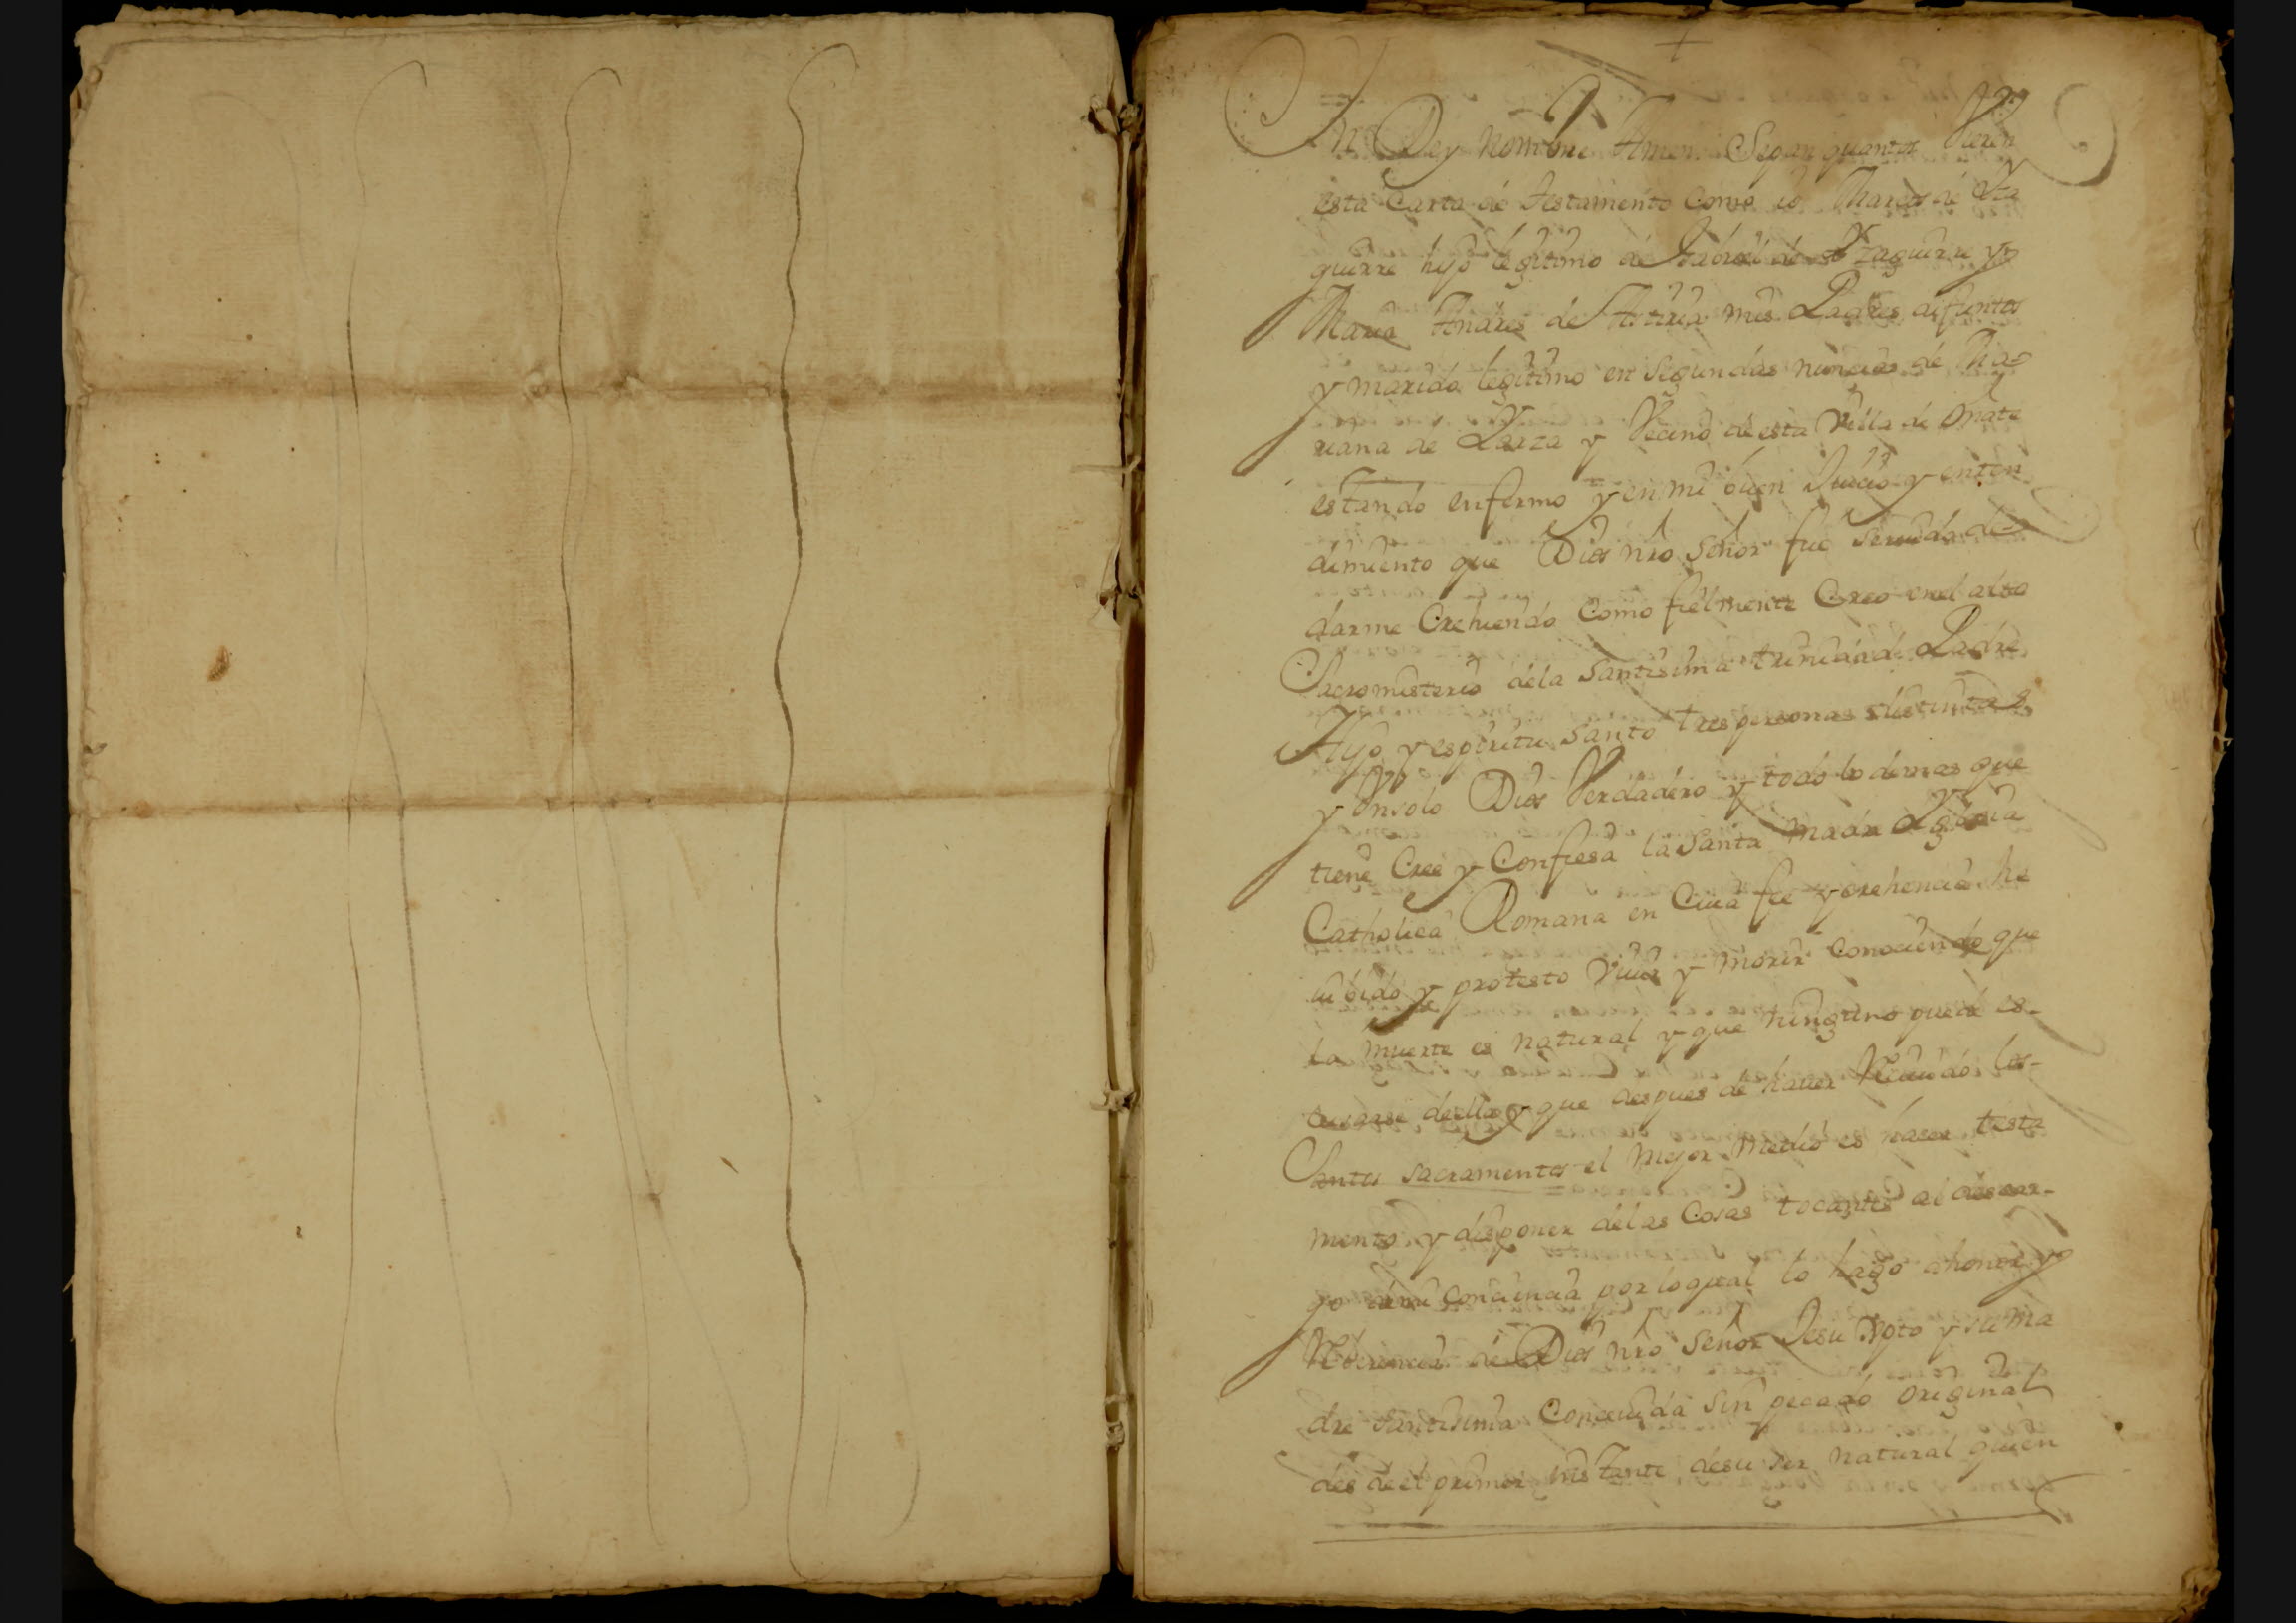 +
In Dey nomine Amen Sepan quantos Vieren
esta Carta de testamento como io Marcos de Yza
guirre hijo legitimo de Gabriel de Yzaguirre y
Maria Andres de Arteria mis Padres difuntos
y marido legitimo en segundas nuncias de Ma
riana de Larza y Vecino de esta Villa de Oñate
estando enfermo y en mi buen Juicio y enten
dimiento que Dios nro Señor fue seruido de
darme Crehiendo Como fielmente Creo en el alto
Sacromisterio de la Santisima trinidad Padre
Hijo y espiritu Santo tres personas distintas
y Un solo Dios Verdadero y todo lo demas que
tiene Cree y Confiesa la Santa Madre Yglesia
Catholica Romana en Cuia fee y crehencia he
uibido y protesto Viuir y morir Conociendo que
la muerte es natural y que ninguno puede es-
cusarse de ella y que despues de hauer Reciuido los-
Santos sacramentos el mejor medio es haser testa
mento y disponer de las Cosas tocantes al descar-
go de mi Conciencia por lo qual lo hago a honor y
Reberencia de Dios nro Señor Jesu Xpto y su ma
dre santisima Conceuida sin pecado original
des de el primer instante de su ser natural quien